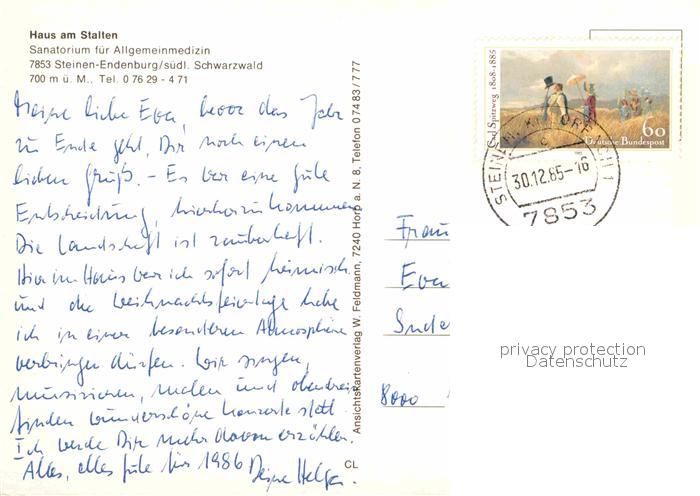 Haus am Stalten
Sanatorium für Allgemeinmedizin
7853 Steinen-Endenburg/südl. Schwarzwald
700 m ü. M., Tel. 0 76 29 - 4 71
Meine liebe Eva, bevor das Jahr
zu Ende geht, Dir noch einen
lieben Gruß. - Es war eine gute
Entscheidung, hierherzukommen.
Die Landschaft ist zauberhaft.
Hier im Haus war ich sofort heimisch
und die Weihnachtsfeiertage habe
ich in einer besonderen Atmosphäre
verbringen dürfen. Wir singen,
musizieren, malen und obendrein
finden wunderschöne Konzerte statt.
Ich werde Dir mehr davon erzählen.
Alles, alles gute für 1986 Deine Helga.
CL
Ansichtskartenverlag W. Feldmann, 7240 Horb a. N. 8, Telefon 0 74 83 / 7 77
Carl Spitzweg 1808-1885
60
Deutsche Bundespost
STEINEN
30.12.85-16
7853
Frau
Eva
Sude
8000
privacy protection
Datenschutz